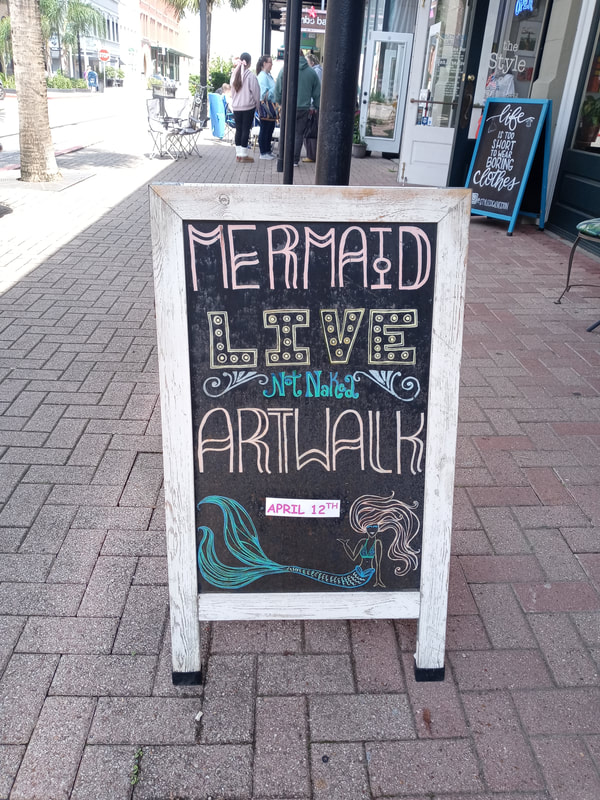 MERMAID
LIVE
Not Naked
ARTWALK
APRIL 12TH
life
IS TOO
SHORT
TO WEAR
BORING
clothes
the
Style